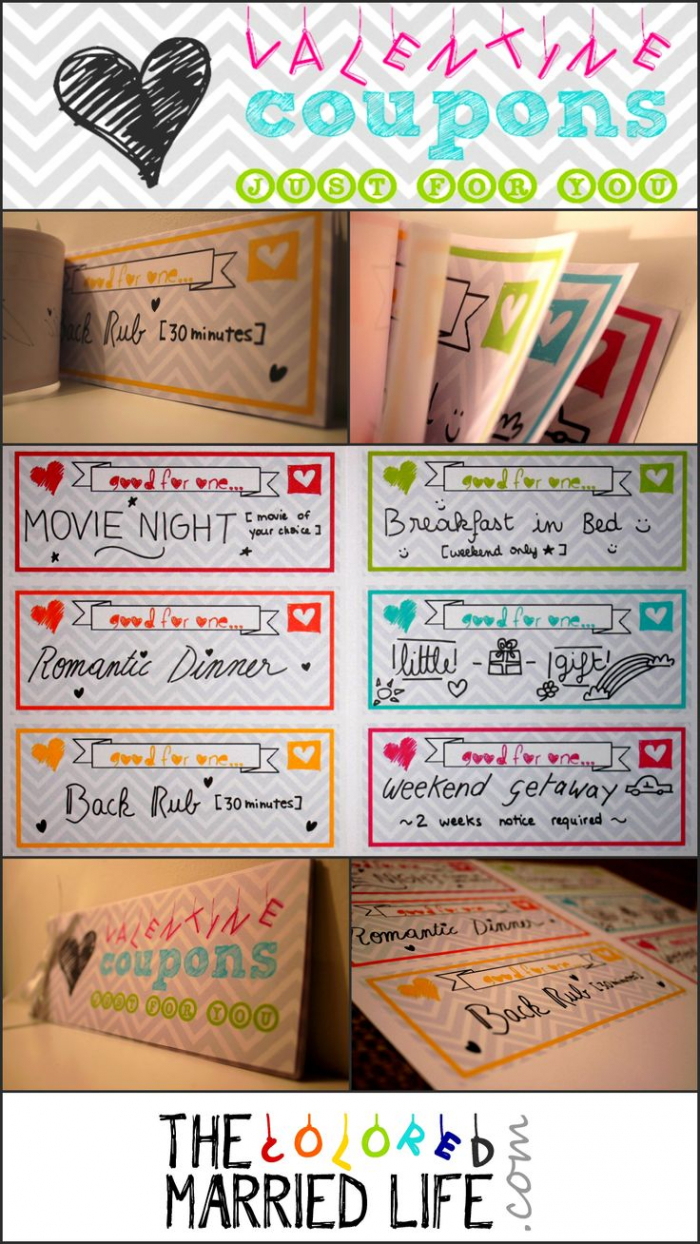 VALENTINE
coupons
JUST FOR YOU
good for one...
Back Rub [30 minutes]
good for one...
MOVIE NIGHT [movie of
your choice]
good for one...
Breakfast in Bed
[weekend only ★]
good for one...
Romantic Dinner
good for one...
little - - gift!
good for one...
Back Rub [30 minutes]
good for one...
weekend getaway
~2 weeks notice required~
VALENTINE
coupons
JUST FOR YOU
NIGHT
Romantic Dinner
good for one...
Back Rub [30 minutes]
THE COLORED
MARRIED LIFE
.com